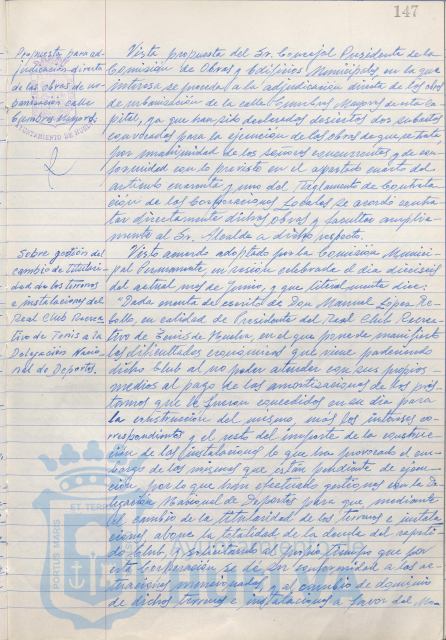 147
Propuesta para ad-
judicación directa
de las obras de ur-
banización calle
Cumbres Mayores.
AYUNTAMIENTO DE HUELVA
Vista propuesta del Sr. Concejal Presidente de la
Comisión de Obras y Edificios Municipales en la que
interesa se proceda a la adjudicación directa de las obras
de urbanización de la calle Cumbres Mayores de esta Ca-
pital, ya que han sido declaradas desiertas dos subastas
convocadas para la ejecución de las obras de que se trata,
por unanimidad de los señores concurrentes y de con-
formidad con lo previsto en el apartado cuarto del
artículo cuarenta y uno del Reglamento de Contrata-
ción de las Corporaciones Locales se acordó contra-
tar directamente dichas obras y facultar amplia-
mente al Sr. Alcalde a dicho respecto.
Sobre gestión del
cambio de titulari-
dad de los terrenos
e instalaciones del
Real Club Recrea-
tivo de Tenis a la
Delegación Nacio-
nal de Deportes.
Visto acuerdo adoptado por la Comisión Munici-
pal Permanente, en sesión celebrada el día dieciseis
del actual mes de Junio, y que literalmente dice:
"Dada cuenta de escrito de Don Manuel López Re-
bollo, en calidad de Presidente del Real Club Recrea-
tivo de Tenis de Huelva, en el que pone de manifiesto
las dificultades económicas que viene padeciendo
dicho Club al no poder atender con sus propios
medios al pago de las amortizaciones de los prés-
tamos que le fueron concedidos en su día para
la construcción del mismo, más los intereses co-
rrespondientes y el resto del importe de la construc-
ción de las instalaciones lo que ha provocado el em-
bargo de las mismas que están pendiente de ejecu-
ción, por lo que han efectuado gestiones con la De-
legación Nacional de Deportes para que mediante
el cambio de la titularidad de los terrenos e instala-
ciones, abone la totalidad de la deuda del repeti-
do Club, y solicitando al propio tiempo que por
esta Corporación se dé su conformidad a las ac-
tuaciones mencionadas y al cambio de dominio
de dichos terrenos e instalaciones a favor del
PORTUS MARIS
ET TERRAE